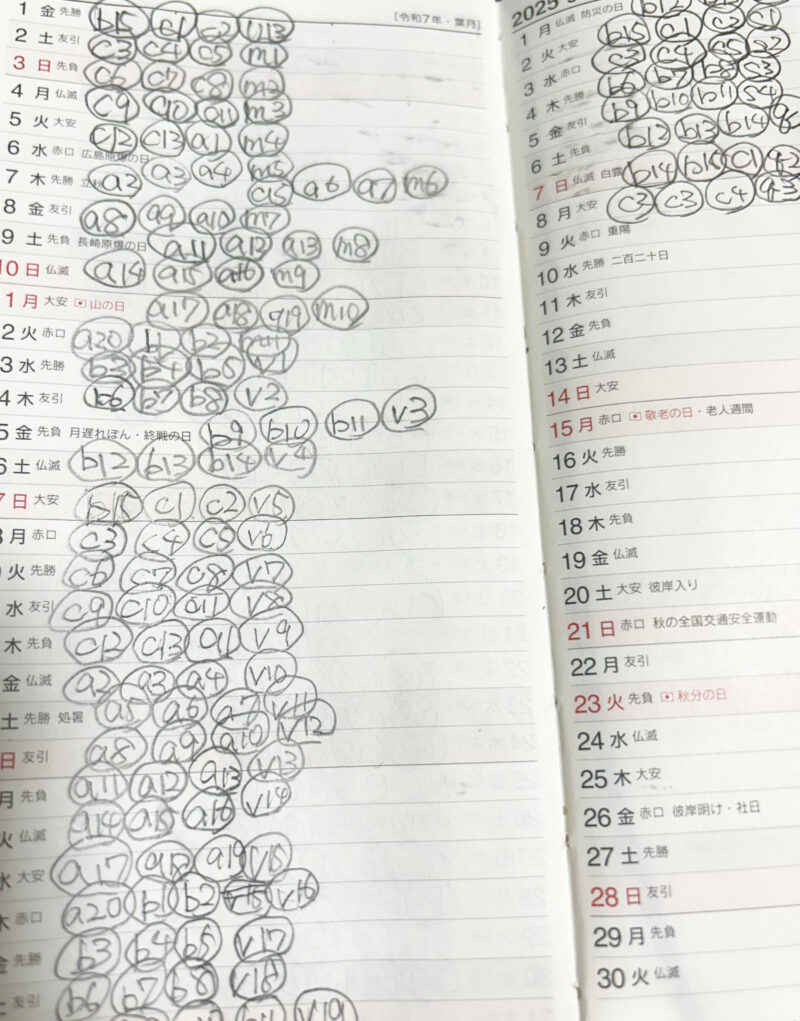 [令和7年・葉月]
1 金 先勝 b15 c1 c2 U13
2 土 友引 c3 c4 c5 m1
3 日 先負 c6 c7 c8 m2
4 月 仏滅 c9 c10 a11 m3
5 火 大安 c12 c13 a1 m4
6 水 赤口 広島原爆の日
7 木 先勝 a2 a3 a4 m5
c15 a6 a7 m6
8 金 友引 a8 a9 a10 m7
9 土 先負 長崎原爆の日 a11 a12 a13 m8
10 日 仏滅 a14 a15 a16 m9
1 月 大安 山の日 a17 a18 a19 m10
2 火 赤口 a20 b1 b2 m11
3 水 先勝 b3 b4 b5 v1
4 木 友引 b6 b7 b8 v2
5 金 先負 月遅れぼん・終戦の日 b9 b10 b11 v3
6 土 仏滅 b12 b13 b14 v4
7 日 大安 b15 c1 c2 v5
月 赤口 c3 c4 c5 v6
火 先勝 c6 c7 c8 v7
水 友引 c9 c10 a11 v8
木 先負 c12 c13 a1 v9
金 仏滅 a2 a3 a4 v10
土 先勝 処暑 a5 a6 a7 v11
日 友引 a8 a9 a10 v12
月 先負 a11 a12 a13 v13
火 仏滅 a14 a15 a16 v14
水 大安 a17 a18 a19 v15
木 赤口 a20 b1 b2 v16
金 先勝 b3 b4 b5 v17
土 友引 b6 b7 b8 v18
b11 v19
2025
1 月 仏滅 防災の日 b12 b13
2 火 大安 b15 c1 c2 c1
3 水 赤口 c3 c4 c5
4 木 先勝 b6 b7 b8 c3
5 金 友引 b9 b10 b11 s4
6 土 先負 b12 b13 b14
7 日 仏滅 白露 b14 b15 c1 q2
8 月 大安 c3 c3 c4 q3
9 火 赤口 重陽
10 水 先勝 二百二十日
11 木 友引
12 金 先負
13 土 仏滅
14 日 大安
15 月 赤口 敬老の日・老人週間
16 火 先勝
17 水 友引
18 木 先負
19 金 仏滅
20 土 大安 彼岸入り
21 日 赤口 秋の全国交通安全運動
22 月 友引
23 火 先負 秋分の日
24 水 仏滅
25 木 大安
26 金 赤口 彼岸明け・社日
27 土 先勝
28 日 友引
29 月 先負
30 火 仏滅